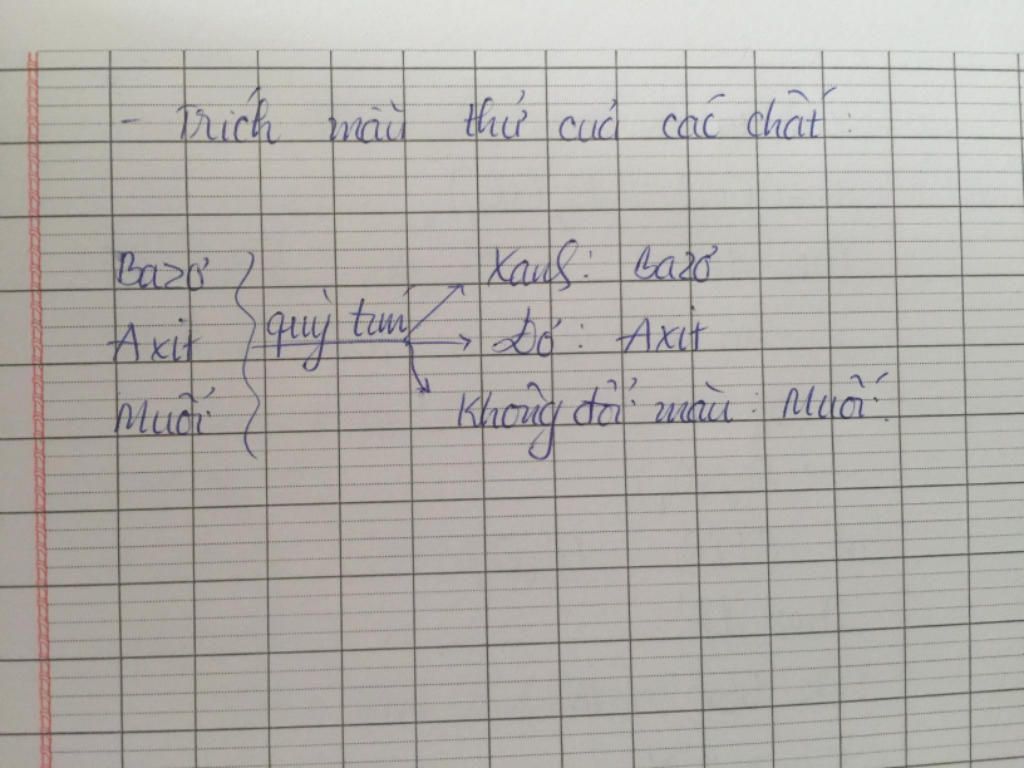 - Trích mẫu thử của các chất:
Bazơ
Axit
Muối
quỳ tím
Xanh: Bazơ
Đỏ: Axit
Không đổi màu: Muối.